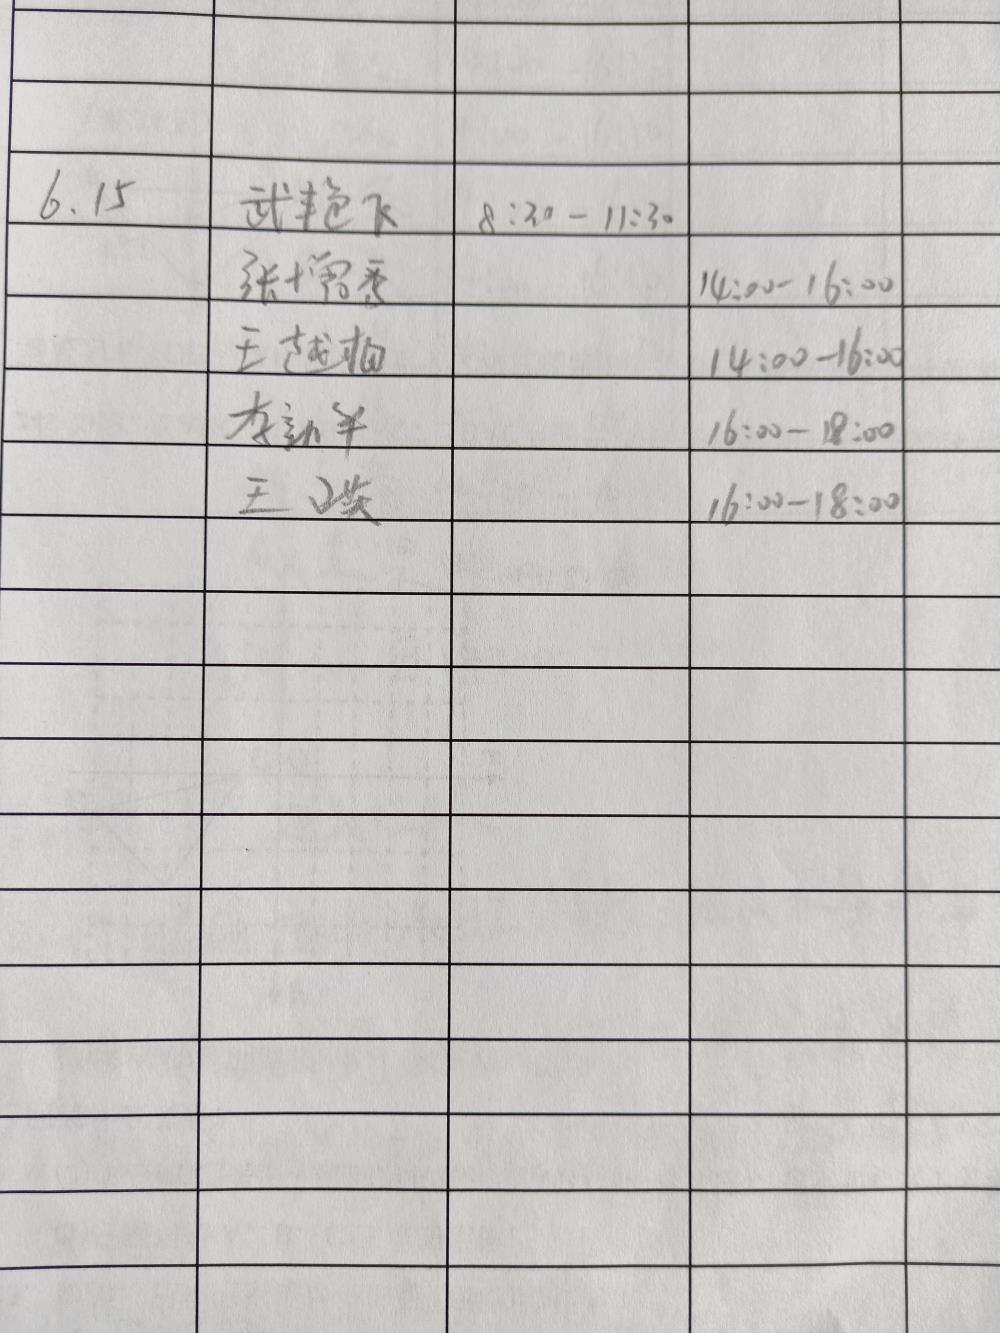 6.15 武艳飞 8:30-11:30
张增香 14:00-16:00
王越柏 14:00-16:00
李新羊 16:00-18:00
王 16:00-18:00